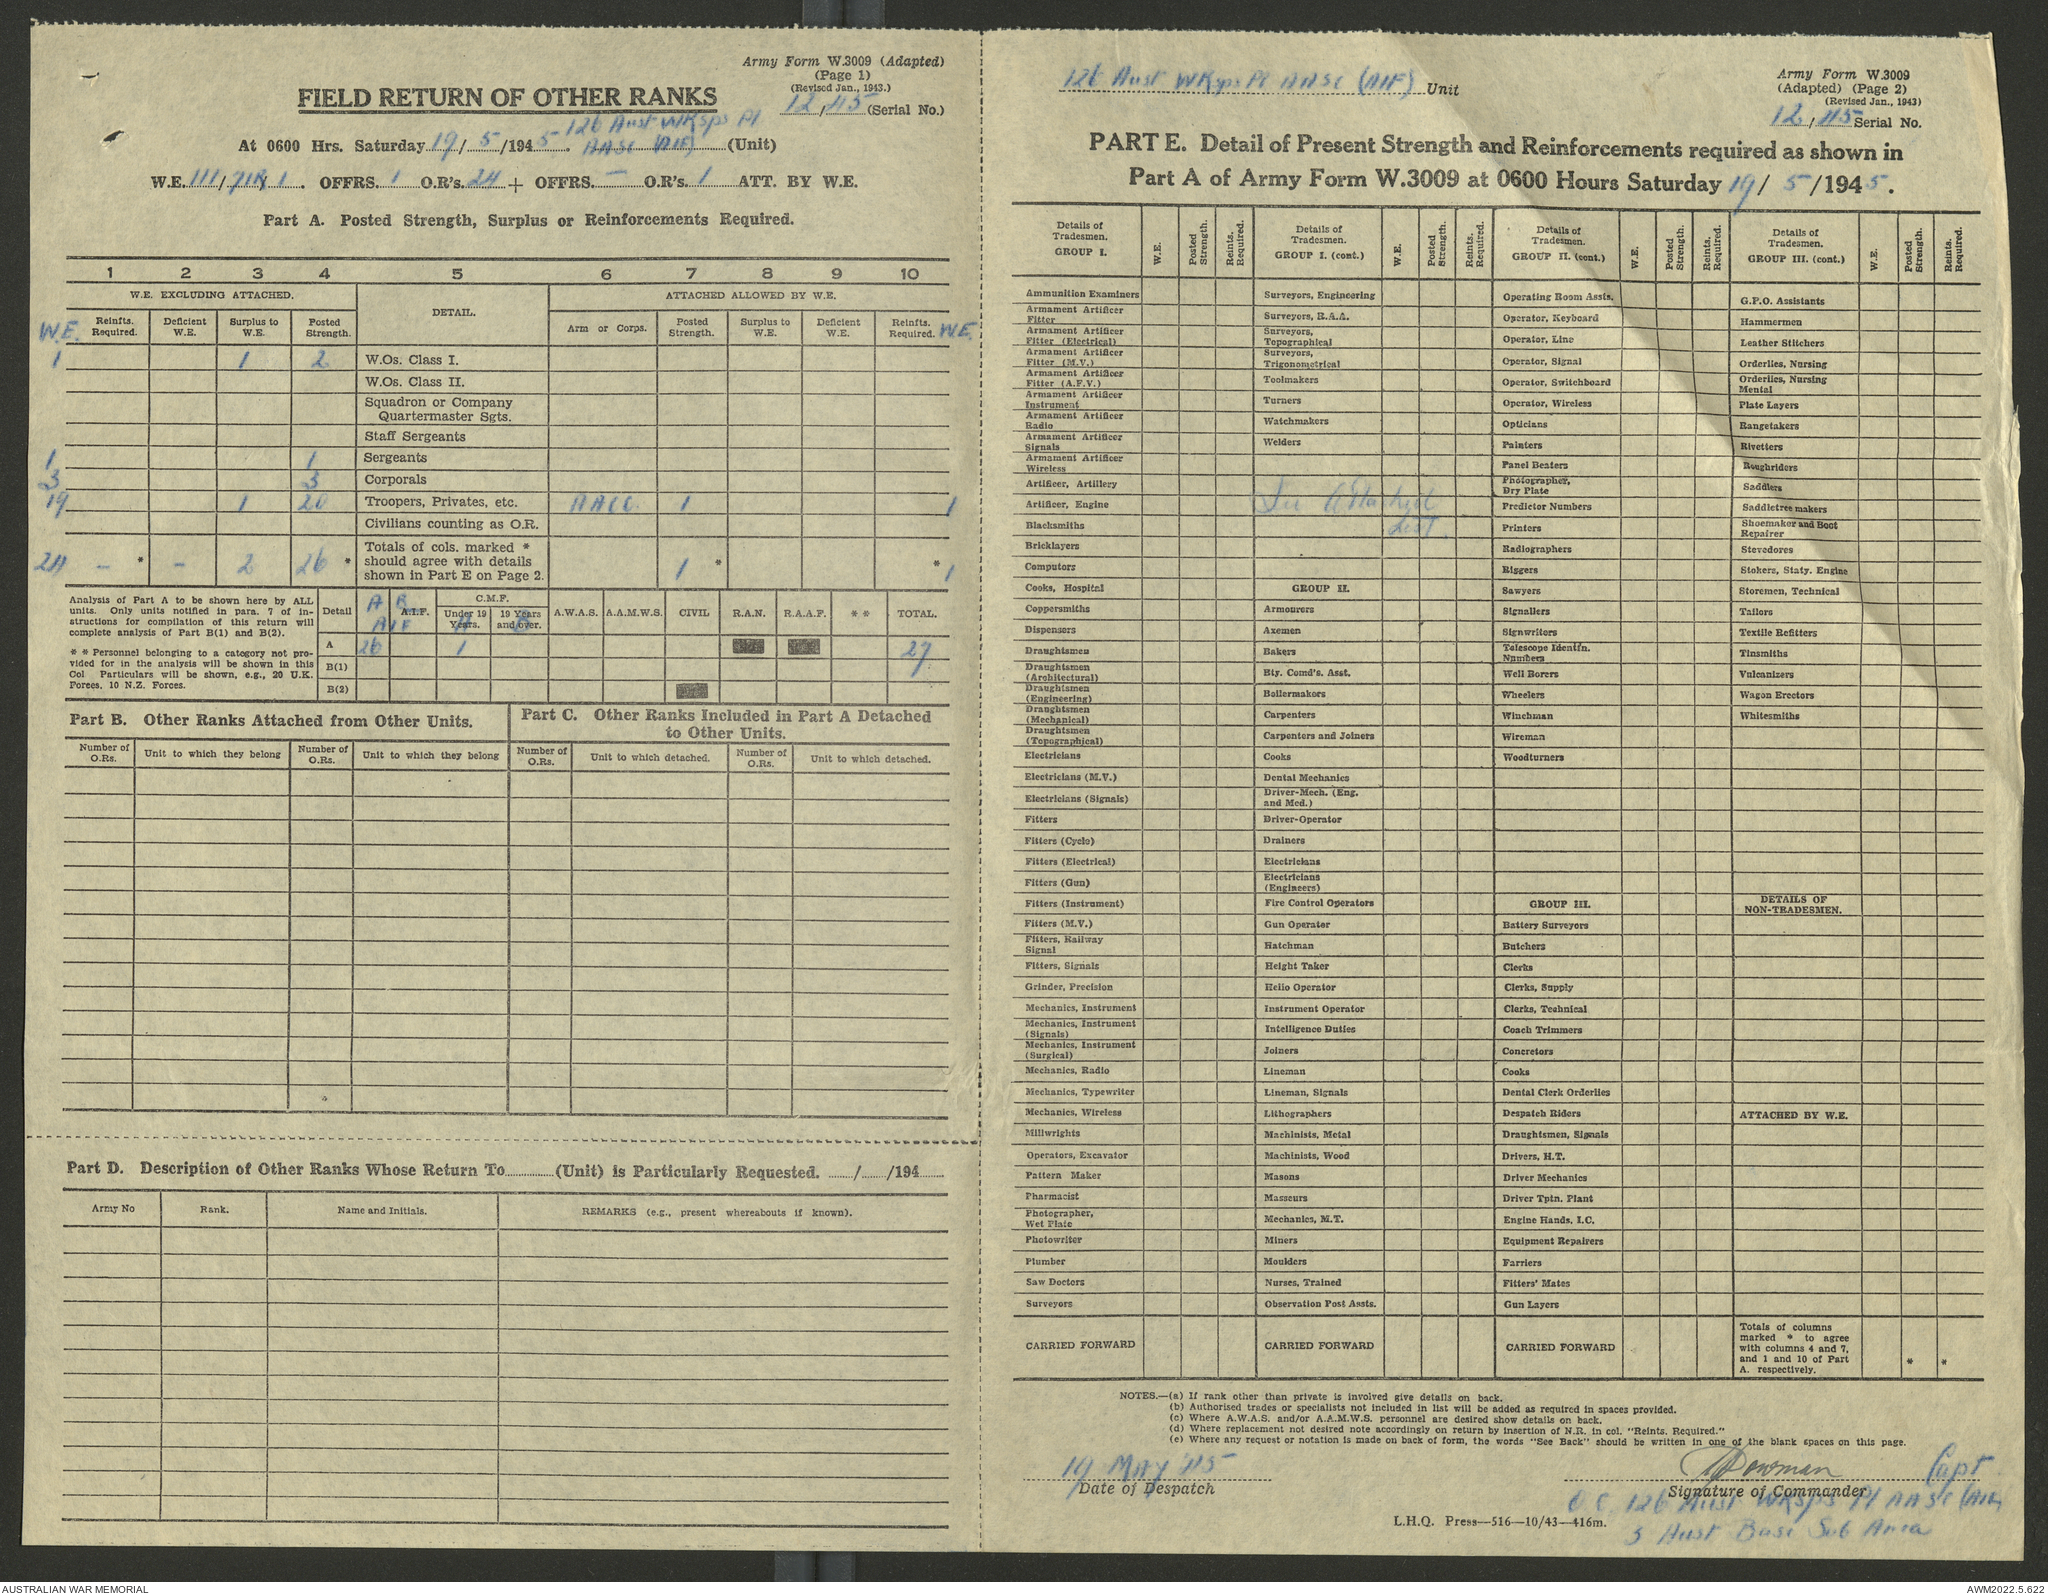 Army Form W.3009 (Adapted)
(Page 1)
(Revised Jan., 1943.)
12/45 (Serial No.)
FIELD RETURN OF OTHER RANKS
At 0600 Hrs. Saturday 19/5/1945. 126 Aust WKsps Pl
AASC (AIF) (Unit)
W.E. 111/71R/1. OFFRS. 1 O.R's. 24 + OFFRS. — O.R's. 1 ATT. BY W.E.
Part A. Posted Strength, Surplus or Reinforcements Required.
1 2 3 4 5 6 7 8 9 10
W.E. EXCLUDING ATTACHED. DETAIL. ATTACHED ALLOWED BY W.E.
W.E. Reinfts. Required. Deficient W.E. Surplus to W.E. Posted Strength. Arm or Corps. Posted Strength. Surplus to W.E. Deficient W.E. Reinfts. Required. W.E.
1 1 2 W.Os. Class I.
W.Os. Class II.
Squadron or Company
Quartermaster Sgts.
Staff Sergeants
1 1 Sergeants
3 3 Corporals
19 1 20 Troopers, Privates, etc. AACC. 1 1
Civilians counting as O.R.
24 - * - 2 26 * Totals of cols. marked *
should agree with details
shown in Part E on Page 2. 1 * * 1
Analysis of Part A to be shown here by ALL
units. Only units notified in para. 7 of in-
structions for compilation of this return will
complete analysis of Part B(1) and B(2).
* * Personnel belonging to a category not pro-
vided for in the analysis will be shown in this
Col Particulars will be shown, e.g., 20 U.K.
Forces, 10 N.Z. Forces.
Detail A B A.I.F. AIF C.M.F. Under 19 Years. A 19 Years and over. B A.W.A.S. A.A.M.W.S. CIVIL R.A.N. R.A.A.F. * * TOTAL.
A 26 1 27
B(1)
B(2)
Part B. Other Ranks Attached from Other Units.
Number of O.Rs. Unit to which they belong Number of O.Rs. Unit to which they belong
Part C. Other Ranks Included in Part A Detached
to Other Units.
Number of O.Rs. Unit to which detached. Number of O.Rs. Unit to which detached.
Part D. Description of Other Ranks Whose Return To............(Unit) is Particularly Requested. ....../....../194......
Army No Rank. Name and Initials. REMARKS (e.g., present whereabouts if known).
126 Aust WKsps Pl AASC (AIF) Unit
Army Form W.3009
(Adapted) (Page 2)
(Revised Jan., 1943)
12/45 Serial No.
PART E. Detail of Present Strength and Reinforcements required as shown in
Part A of Army Form W.3009 at 0600 Hours Saturday 19/5/1945.
Details of Tradesmen. GROUP I. W.E. Posted Strength. Reints. Required.
Ammunition Examiners
Armament Artificer Fitter
Armament Artificer Fitter (Electrical)
Armament Artificer Fitter (M.V.)
Armament Artificer Fitter (A.F.V.)
Armament Artificer Instrument
Armament Artificer Radio
Armament Artificer Signals
Armament Artificer Wireless
Artificer, Artillery
Artificer, Engine
Blacksmiths
Bricklayers
Computors
Cooks, Hospital
Coppersmiths
Dispensers
Draughtsmen
Draughtsmen (Architectural)
Draughtsmen (Engineering)
Draughtsmen (Mechanical)
Draughtsmen (Topographical)
Electricians
Electricians (M.V.)
Electricians (Signals)
Fitters
Fitters (Cycle)
Fitters (Electrical)
Fitters (Gun)
Fitters (Instrument)
Fitters (M.V.)
Fitters, Railway Signal
Fitters, Signals
Grinder, Precision
Mechanics, Instrument
Mechanics, Instrument (Signals)
Mechanics, Instrument (Surgical)
Mechanics, Radio
Mechanics, Typewriter
Mechanics, Wireless
Millwrights
Operators, Excavator
Pattern Maker
Pharmacist
Photographer, Wet Plate
Photowriter
Plumber
Saw Doctors
Surveyors
CARRIED FORWARD
Details of Tradesmen. GROUP I. (cont.) W.E. Posted Strength. Reints. Required.
Surveyors, Engineering
Surveyors, R.A.A.
Surveyors, Topographical
Surveyors, Trigonometrical
Toolmakers
Turners
Watchmakers
Welders
See Attached
List
GROUP II.
Armourers
Axemen
Bakers
Bty. Comd's. Asst.
Boilermakers
Carpenters
Carpenters and Joiners
Cooks
Dental Mechanics
Driver-Mech. (Eng. and Med.)
Driver-Operator
Drainers
Electricians
Electricians (Engineers)
Fire Control Operators
Gun Operator
Hatchman
Height Taker
Helio Operator
Instrument Operator
Intelligence Duties
Joiners
Lineman
Lineman, Signals
Lithographers
Machinists, Metal
Machinists, Wood
Masons
Masseurs
Mechanics, M.T.
Miners
Moulders
Nurses, Trained
Observation Post Assts.
CARRIED FORWARD
Details of Tradesmen. GROUP II. (cont.) W.E. Posted Strength. Reints. Required.
Operating Room Assts.
Operator, Keyboard
Operator, Line
Operator, Signal
Operator, Switchboard
Operator, Wireless
Opticians
Painters
Panel Beaters
Photographer, Dry Plate
Predictor Numbers
Printers
Radiographers
Riggers
Sawyers
Signallers
Signwriters
Telescope Identfn. Numbers
Well Borers
Wheelers
Winchman
Wireman
Woodturners
GROUP III.
Battery Surveyors
Butchers
Clerks
Clerks, Supply
Clerks, Technical
Coach Trimmers
Concretors
Cooks
Dental Clerk Orderlies
Despatch Riders
Draughtsmen, Signals
Drivers, H.T.
Driver Mechanics
Driver Tptn. Plant
Engine Hands, I.C.
Equipment Repairers
Farriers
Fitters' Mates
Gun Layers
CARRIED FORWARD
Details of Tradesmen. GROUP III. (cont.) W.E. Posted Strength. Reints. Required.
G.P.O. Assistants
Hammermen
Leather Stitchers
Orderlies, Nursing
Orderlies, Nursing Mental
Plate Layers
Rangetakers
Rivetters
Roughriders
Saddlers
Saddletree makers
Shoemaker and Boot Repairer
Stevedores
Stokers, Staty. Engine
Storemen, Technical
Tailors
Textile Refitters
Tinsmiths
Vulcanizers
Wagon Erectors
Whitesmiths
DETAILS OF
NON-TRADESMEN.
ATTACHED BY W.E.
Totals of columns
marked * to agree
with columns 4 and 7,
and 1 and 10 of Part
A. respectively. * *
NOTES.—(a) If rank other than private is involved give details on back.
(b) Authorised trades or specialists not included in list will be added as required in spaces provided.
(c) Where A.W.A.S. and/or A.A.M.W.S. personnel are desired show details on back.
(d) Where replacement not desired note accordingly on return by insertion of N.R. in col. "Reints. Required."
(e) Where any request or notation is made on back of form, the words "See Back" should be written in one of the blank spaces on this page.
19 MAY '45
Date of Despatch
Bowman Capt
Signature of Commander
O.C. 126 Aust WKsps Pl AASC (AIF)
3 Aust Base Sub Area
L.H.Q. Press—516—10/43—416m.
AUSTRALIAN WAR MEMORIAL
AWM2022.5.622